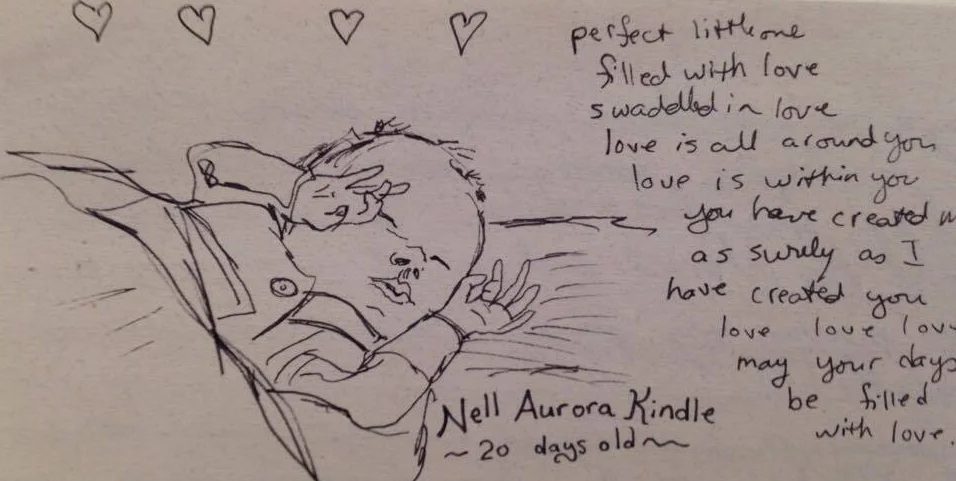 perfect little one
filled with love
swaddled in love
love is all around you
love is within you
you have created
as surely as I
have created you
love love love
may your days
be filled
with love.
Nell Aurora Kindle
~ 20 days old ~